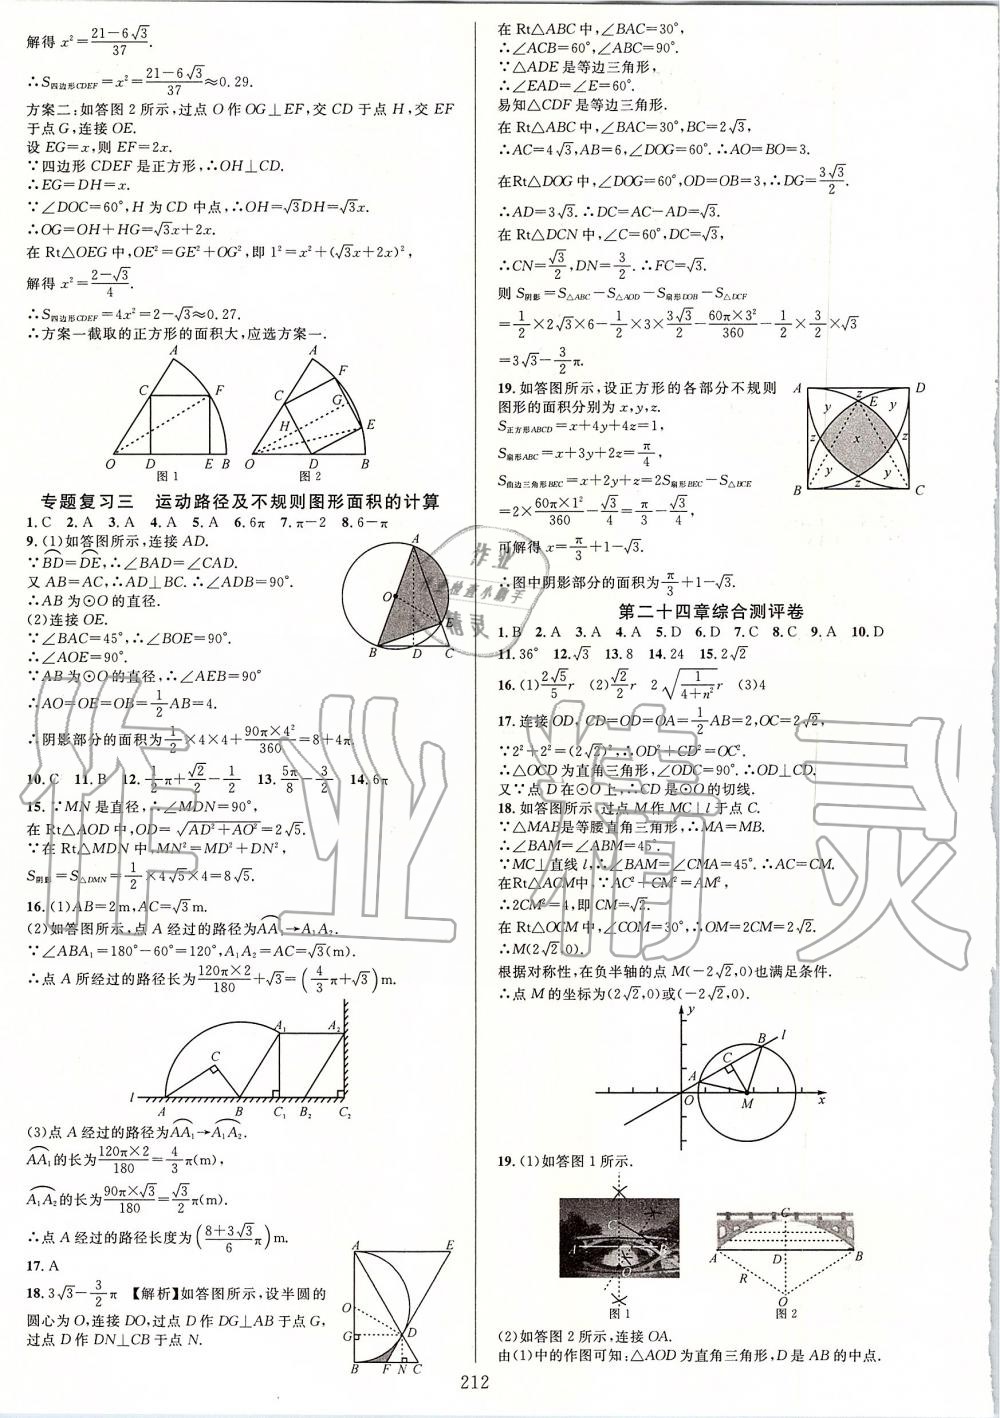 解得 x²=(21-6√3)/37.
∴S四边形CDEF=x²=(21-6√3)/37≈0.29.
方案二:如答图 2 所示,过点 O 作 OG⊥EF,交 CD 于点 H,交 EF
于点 G,连接 OE.
设 EG=x,则 EF=2x.
∵四边形 CDEF 是正方形,∴OH⊥CD.
∴EG=DH=x.
∵∠DOC=60°,H 为 CD 中点,∴OH=√3DH=√3x.
∴OG=OH+HG=√3x+2x.
在 Rt△OEG 中,OE²=GE²+OG²,即 1²=x²+(√3x+2x)²,
解得 x²=(2-√3)/4.
∴S四边形CDEF=4x²=2-√3≈0.27.
∴方案一截取的正方形的面积大,应选方案一.
A C F O D E B 图 1
A C F G H E O D B 图 2
专题复习三 运动路径及不规则图形面积的计算
1.C 2.A 3.A 4.A 5.A 6.6π 7.π-2 8.6-π
9.(1)如答图所示,连接 AD.
∵BD⌢=DE⌢,∴∠BAD=∠CAD.
又 AB=AC,∴AD⊥BC. ∴∠ADB=90°.
∴AB 为⊙O 的直径.
(2)连接 OE.
∵∠BAC=45°,∴∠BOE=90°.
∴∠AOE=90°.
∵AB 为⊙O 的直径,∴∠AEB=90°
∴AO=OE=OB=1/2AB=4.
∴阴影部分的面积为1/2×4×4+(90π×4²)/360=8+4π.
A O E B D C
10.C 11.B 12.1/2π+√2/2-1/2 13.5π/8-3/2 14.6π
15.∵MN 是直径,∴∠MDN=90°,
在 Rt△AOD 中,OD=√(AD²+AO²)=2√5.
∵在 Rt△MDN 中,MN²=MD²+DN²,
S阴影=S△DMN=1/2×4√5×4=8√5.
16.(1)AB=2m,AC=√3m.
(2)如答图所示,点 A 经过的路径为AA₁⌢→A₁A₂.
∵∠ABA₁=180°-60°=120°,A₁A₂=AC=√3(m),
∴点 A 所经过的路径长为(120π×2)/180+√3=(4/3π+√3)m.
A₁ A₂ C l A B C₁ B₂ C₂
(3)点 A 经过的路径为AA₁⌢→A₁A₂⌢.
AA₁⌢的长为(120π×2)/180=4/3π(m),
A₁A₂⌢的长为(90π×√3)/180=√3/2π(m).
∴点 A 经过的路径长度为((8+3√3)/6π)m.
17.A
18.3√3-3/2π 【解析】如答图所示,设半圆的
圆心为 O,连接 DO,过点 D 作 DG⊥AB 于点 G,
过点 D 作 DN⊥CB 于点 N.
A E O G D B F N C
在 Rt△ABC 中,∠BAC=30°,
∴∠ACB=60°,∠ABC=90°.
∵△ADE 是等边三角形,
∴∠EAD=∠E=60°.
易知△CDF 是等边三角形.
在 Rt△ABC 中,∠BAC=30°,BC=2√3,
∴AC=4√3,AB=6,∠DOG=60°.∴AO=BO=3.
在Rt△DOG 中,∠DOG=60°,OD=OB=3,∴DG=3√3/2.
∴AD=3√3. ∴DC=AC-AD=√3.
在 Rt△DCN 中,∠C=60°,DC=√3,
∴CN=√3/2,DN=3/2. ∴FC=√3.
则 S阴影=S△ABC-S△AOD-S扇形DOB-S△DCF
=1/2×2√3×6-1/2×3×3√3/2-(60π×3²)/360-1/2×3/2×√3
=3√3-3/2π.
19.如答图所示,设正方形的各部分不规则
图形的面积分别为 x,y,z.
S正方形ABCD=x+4y+4z=1,
S扇形ABC=x+3y+2z=π/4,
S曲边三角形BEC=x+2y+z=2S扇形BEC-S△BCE
=2×(60π×1²)/360-√3/4=π/3-√3/4,
可解得 x=π/3+1-√3.
∴图中阴影部分的面积为π/3+1-√3.
A D z E y y z x z y y z B C
第二十四章综合测评卷
1.B 2.A 3.A 4.A 5.D 6.D 7.C 8.C 9.A 10.D
11.36° 12.√3 13.8 14.24 15.2√2
16.(1)2√5/5r (2)√2/2r 2√(1/(4+n²))r (3)4
17.连接 OD, CD=OD=OA=1/2AB=2,OC=2√2,
∵2²+2²=(2√2)²,∴OD²+CD²=OC².
∴△OCD 为直角三角形,∠ODC=90°.∴OD⊥CD.
又∵点 D 在⊙O 上,∴CD 是⊙O 的切线.
18.如答图所示,过点 M 作 MC⊥l 于点 C.
∵△MAB是等腰直角三角形,∴MA=MB.
∴∠BAM=∠ABM=45°.
∵MC⊥直线 l,∴∠BAM=∠CMA=45°.∴AC=CM.
在Rt△ACM中,∵AC²+CM²=AM²,
∴2CM²=4,即 CM=√2.
在 Rt△OCM 中,∠COM=30°,∴OM=2CM=2√2.
∴M(2√2,0).
根据对称性,在负半轴的点 M(-2√2,0)也满足条件.
∴点 M 的坐标为(2√2,0)或(-2√2,0).
y B l C A O M x
19.(1)如答图 1 所示.
C A B O 图 1
G A D B R O 图 2
(2)如答图 2 所示,连接 OA.
由(1)中的作图可知:△AOD 为直角三角形,D 是 AB 的中点.
212
作业精灵